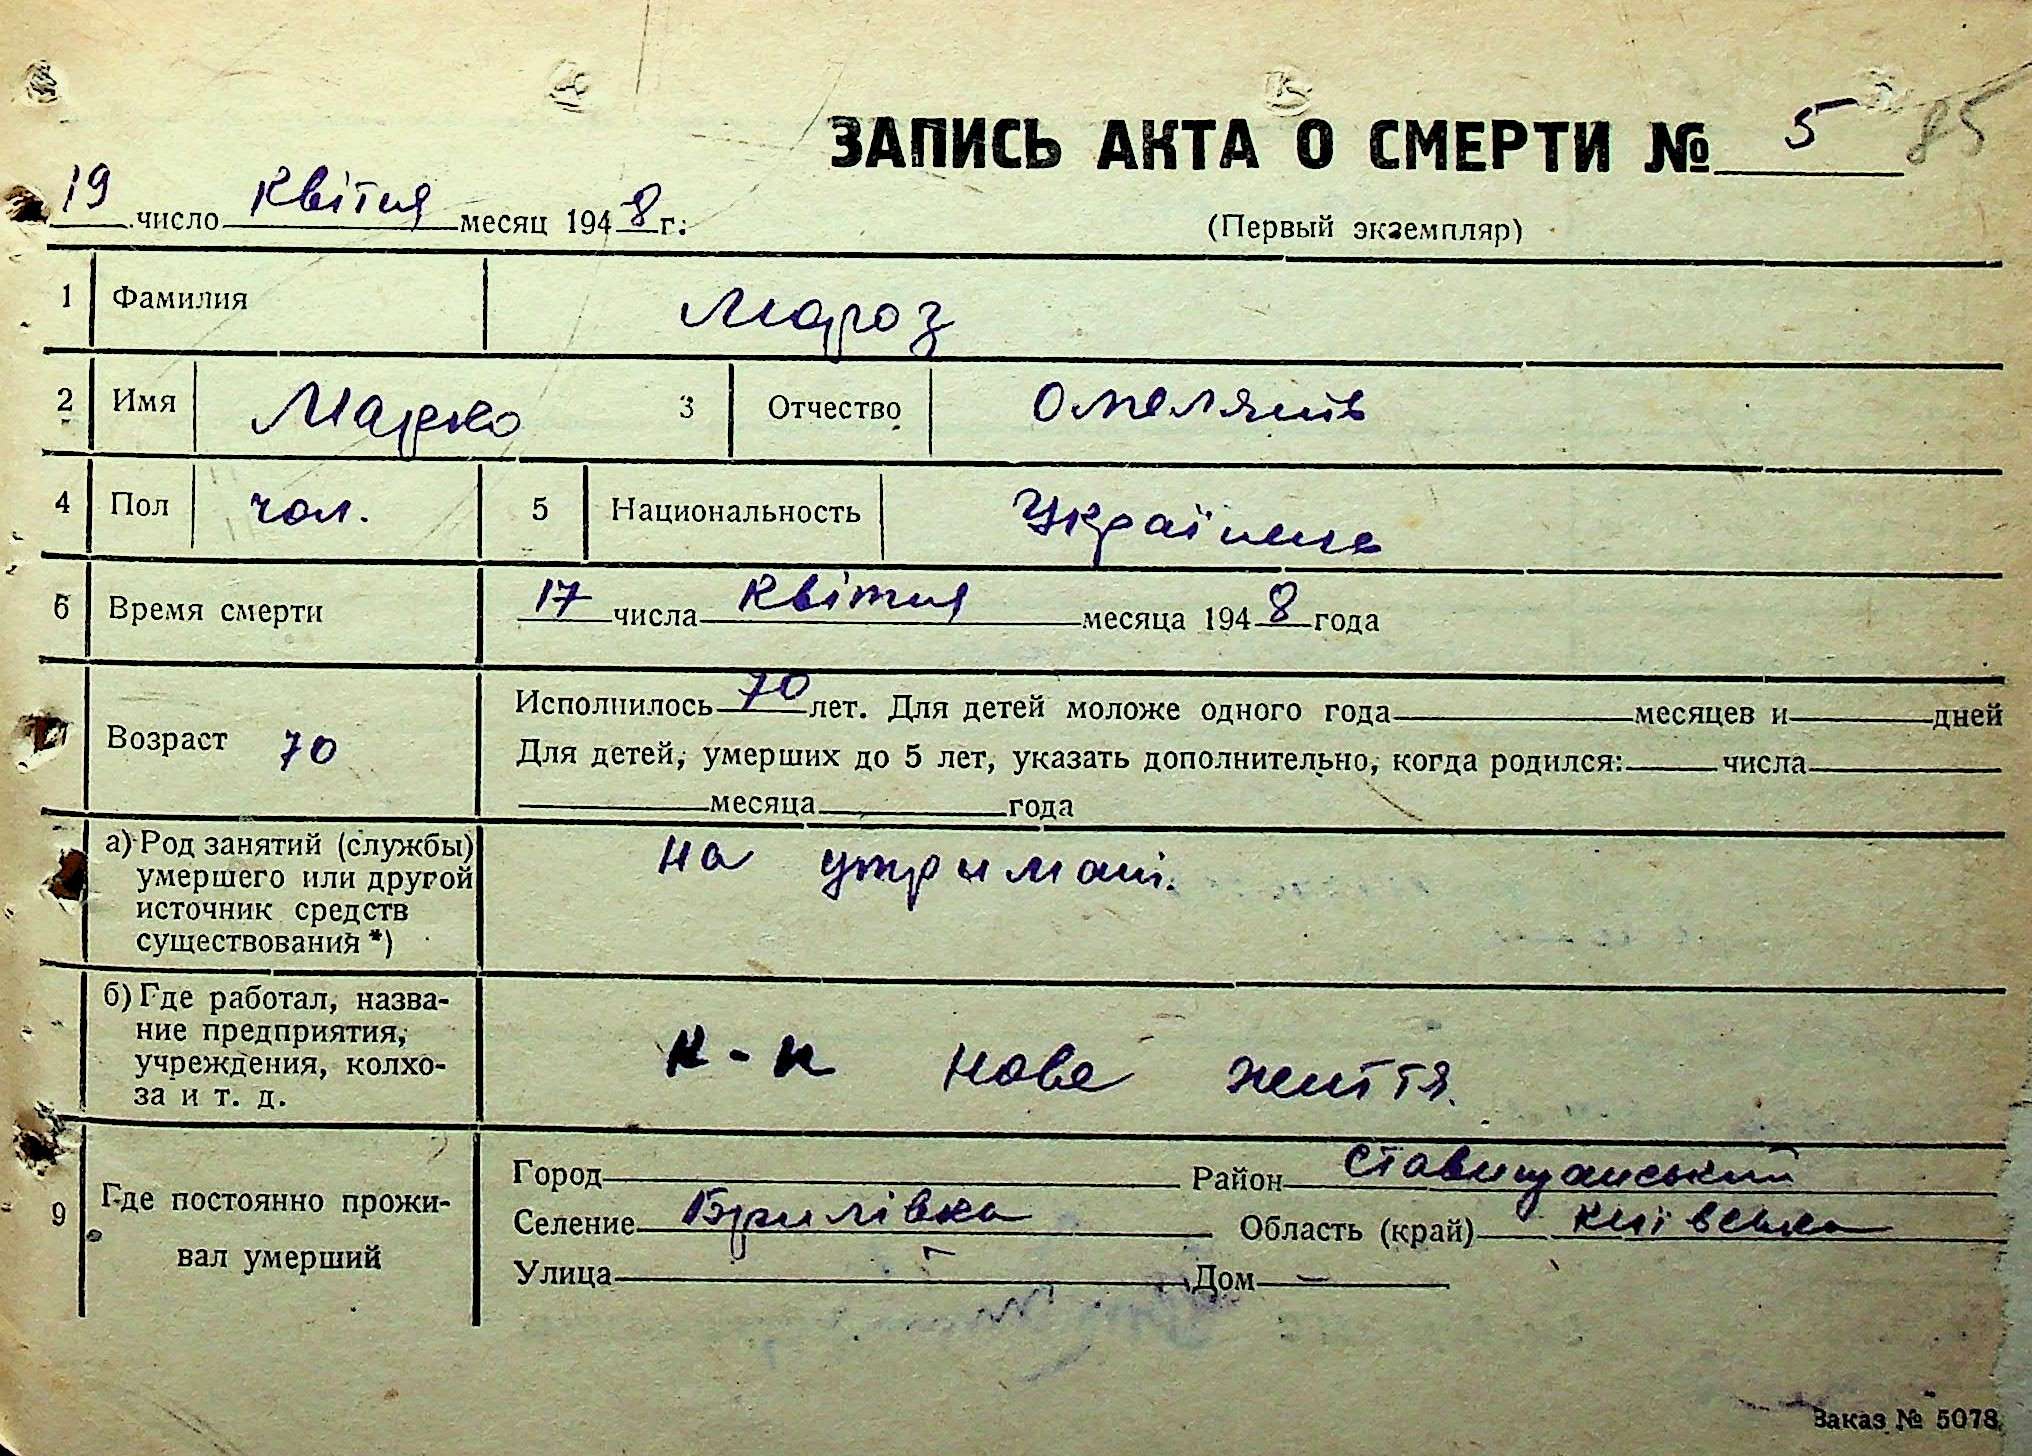 ЗАПИСЬ АКТА О СМЕРТИ № 5 85
19 число Квітня месяц 1948 г.
(Первый экземпляр)
1 Фамилия Мароз
2 Имя Марко 3 Отчество Омелянів
4 Пол чол. 5 Национальность Українец
6 Время смерти 17 числа Квітня месяца 1948 года
Возраст 70 Исполнилось 70 лет. Для детей моложе одного года месяцев и дней
Для детей, умерших до 5 лет, указать дополнительно, когда родился: числа
месяца года
а) Род занятий (службы) на утримані.
умершего или другой
источник средств
существования *)
б) Где работал, назва-
ние предприятия,
учреждения, колхо- к-к нове життя.
за и т. д.
9 Где постоянно прожи-
вал умерший
Город Район Ставищанський
Селение Брилівка Область (край) Київська
Улица Дом —
Заказ № 5078